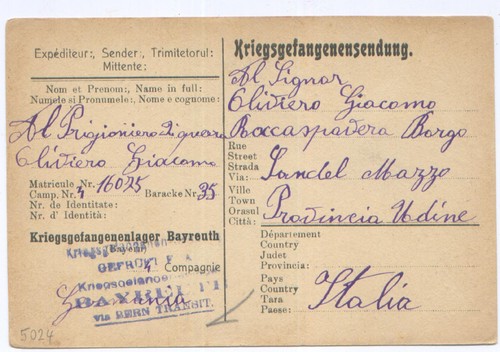 Expéditeur:, Sender:, Trimitetorul:
Mittente:
Nom et Prenom:, Name in full:
Numele si Pronumele:, Nome e cognome:
Al Prigioniero Di guerra
Oliviero Giacomo
Matricule Nr. 16025
Camp. Nr. 4 Baracke Nr. 35
Nr. de Identitate:
Nr. d' Identità:
Kriegsgefangenenlager Bayreuth
Bayern
4. Compagnie
Germania
GEPRÜFT
BAYREUTH
via BERN TRANSIT.
5024
Kriegsgefangenensendung.
Al Signor
Oliviero Giacomo
Roccaspadera Borgo
Rue
Street
Strada
Via: Sandel Mazzo
Ville
Town
Orasul
Città: Provincia Udine
Département
Country
Judet
Provincia:
Pays
Country
Tara
Paese: Italia